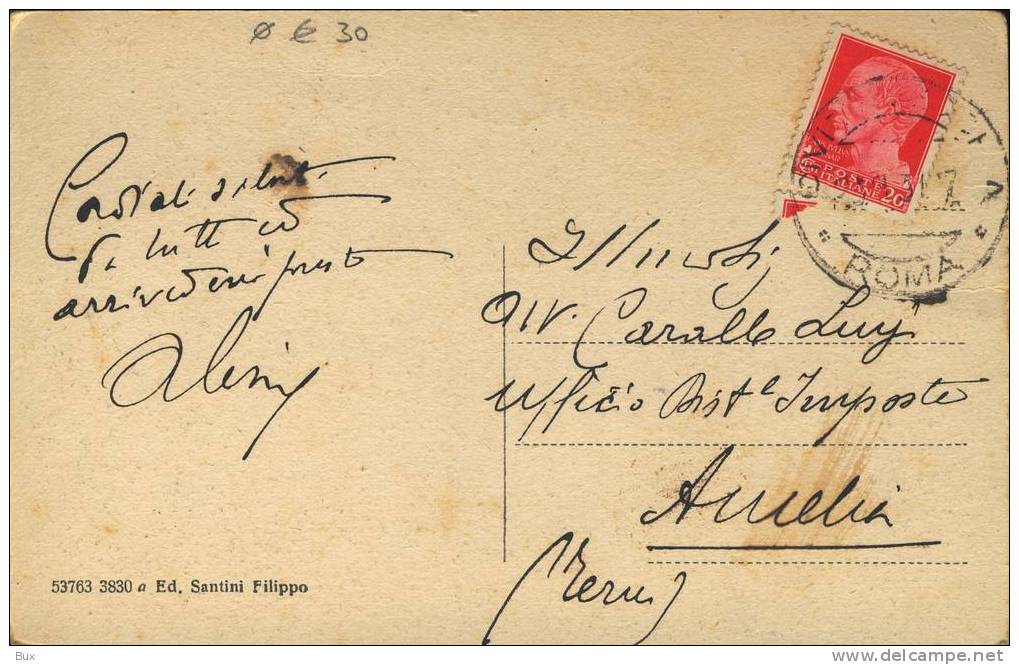 ø € 30
Cordiali saluti
da tutti ed
arrivederci presto
IVLIVS
POSTE
ITALIANE 20
ROMA
Ill.mo Sig.
Avv. Carallo Luigi
Ufficio Dist.le Imposte
Amelia
(Terni)
53763 3830 a Ed. Santini Filippo
Bux
www.delcampe.net